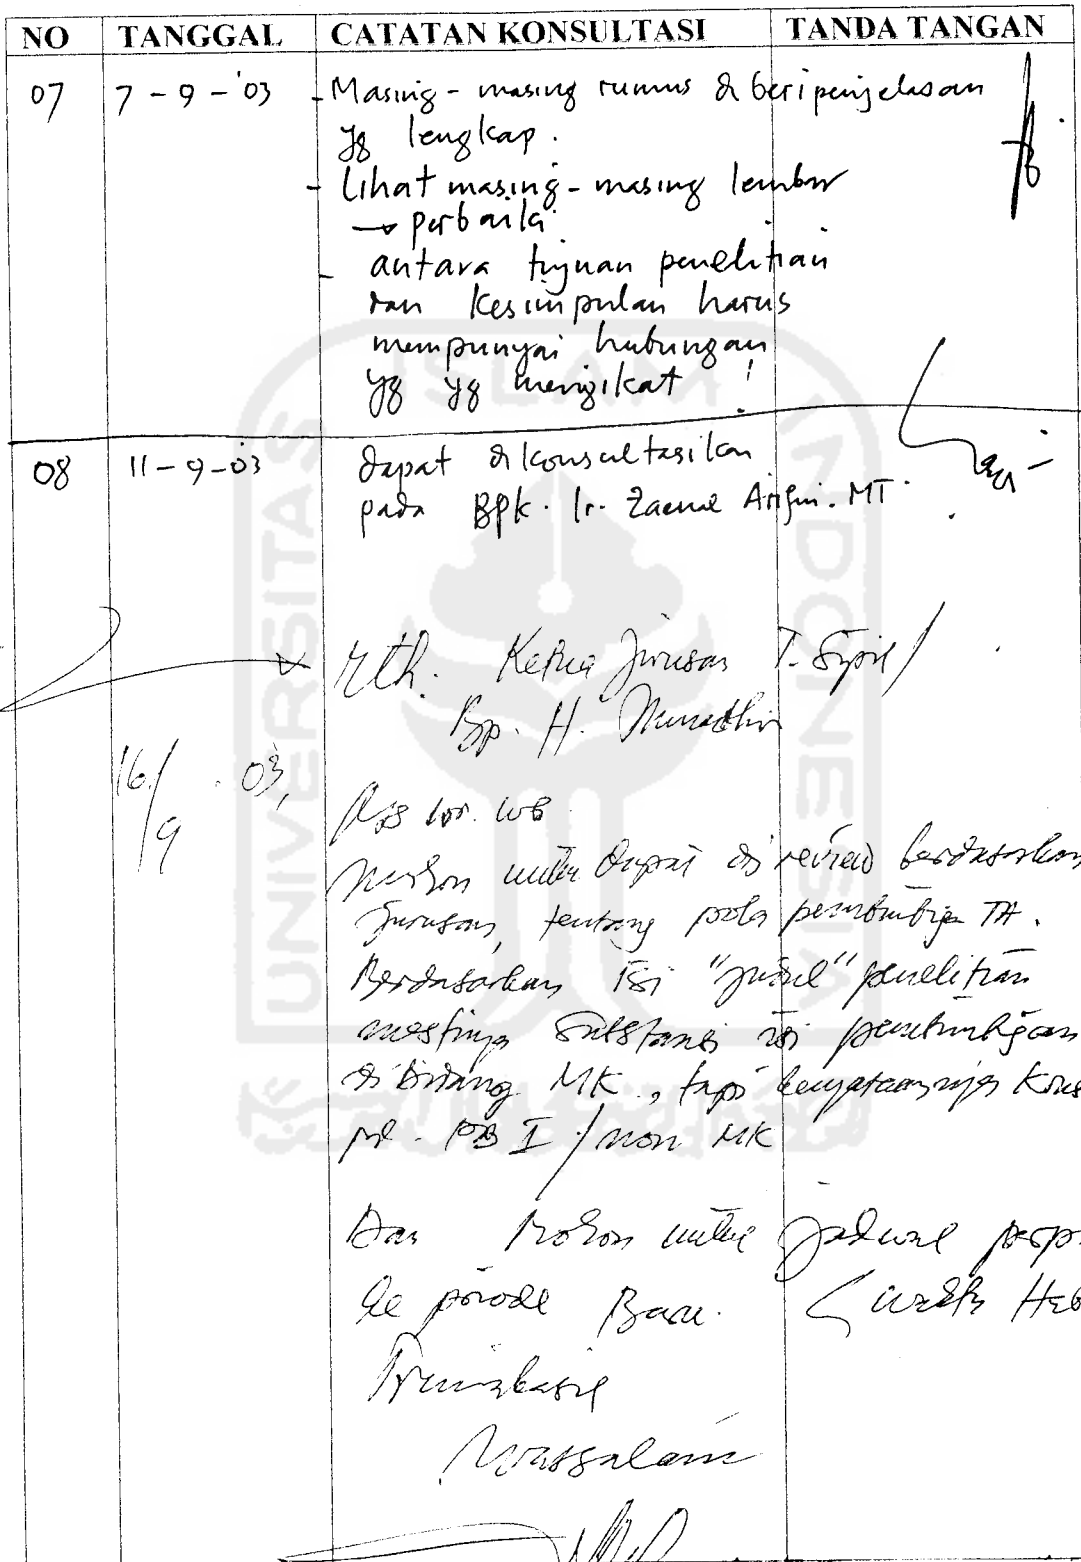 NO TANGGAL CATATAN KONSULTASI TANDA TANGAN
07 7-9-'03 - Masing-masing rumus di beri penjelasan
yg lengkap.
- Lihat masing-masing lembar
→ perbaiki
- antara tujuan penelitian
dan kesimpulan harus
mempunyai hubungan
yg yg mengikat !
08 11-9-03 dapat di konsultasikan
pada Bpk. Ir. Zaenal Arifin. MT.
Yth. Ketua Jurusan T. Sipil
Bp. H. Munadhir
16/9 . 03,
Ass wr. wb
Mohon untuk dapat di review berdasarkan
Jurusan, tentang pola pembimbing TA.
Berdasarkan isi "judul" penelitian
mestinya substansi isi pembimbingan
di bidang MK, tapi kenyataannya Kons
PB I / non MK
Dan mohon untuk jadwal perp
ke periode Baru. (waktu Hab
Terimakasih
Wassalam
UNIVERSITAS ISLAM INDONESIA